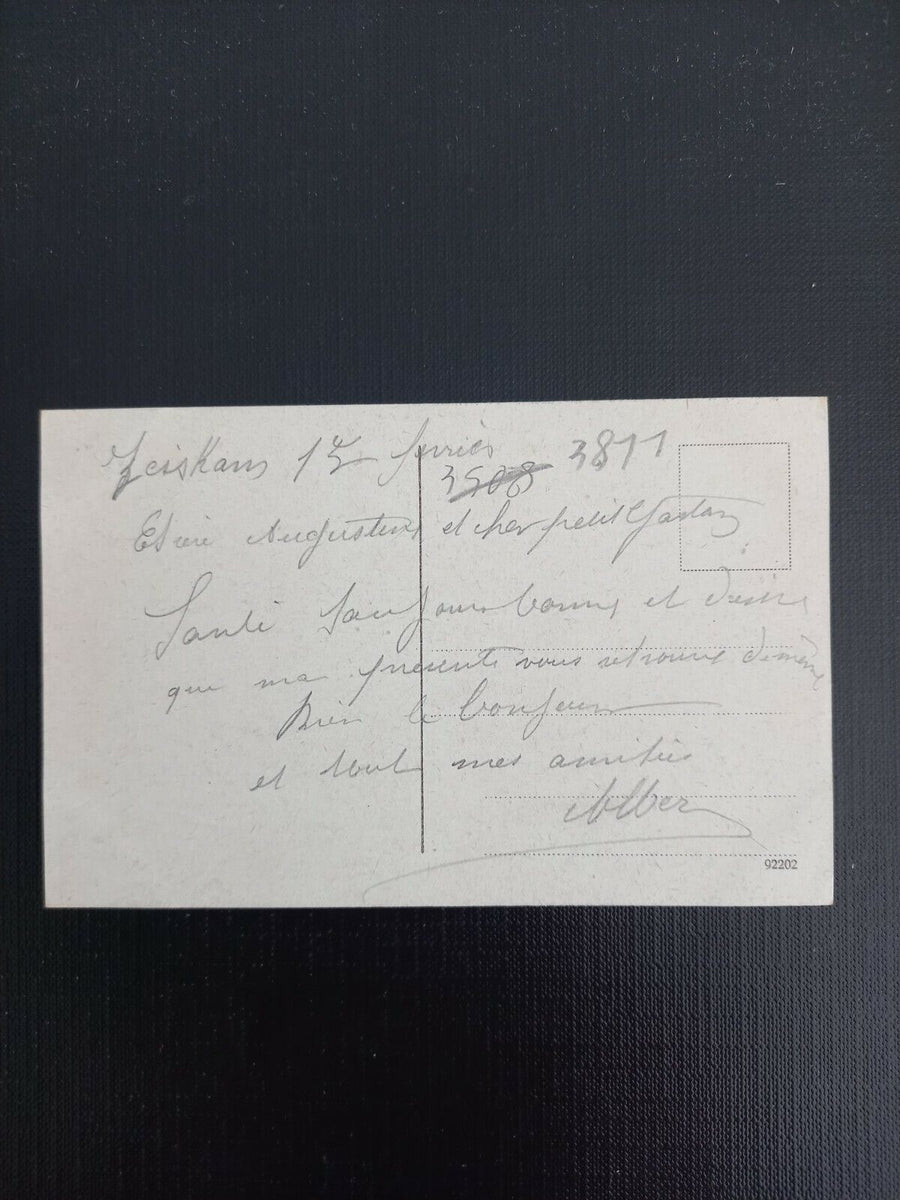 Zeiskam 15 fevrier 3811
3508
Augustine et cher petit Gaston
Santé toujours bonne et désire
que ma présente vous retrouve de même
Bien le bonjour
et toute mes amitiés
Alber
92202